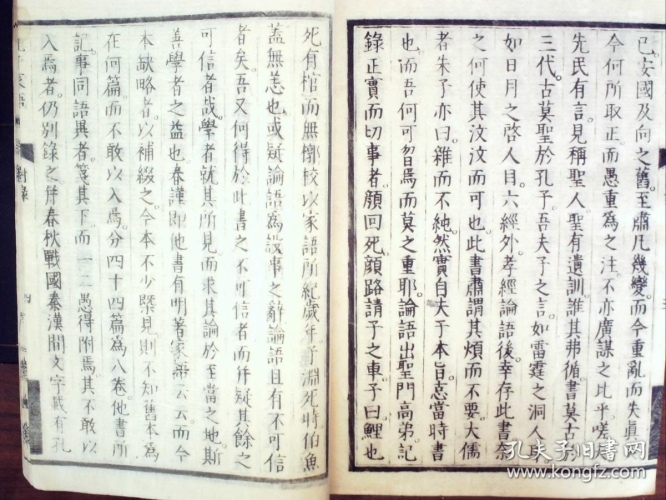 已安國及向之舊至肅凡幾變而今重亂而失真
今何所取正而愚重為之注不亦廣謀之比乎嗟
先民有言見稱聖人聖有遺訓誰其弗循書莫古於
三代古莫聖於孔子吾夫子之言如雷霆之洞人
如日月之啓人目六經外孝經論語後幸存此書奈
之何使其汶汶而可也此書肅謂其煩而不要大儒
者朱子亦曰雜而不純然實自夫子本旨意當時書
也而吾何可曽焉而莫之重耶論語出聖門高弟記
錄正實而切事者顏回死顏路請子之車子曰鯉也
死有棺而無槨校以家語所紀歲年子淵死時伯魚
蓋無恙也或疑論語為設事之辭論語且有不可信
者矣吾又何得於此書之不可信者而併疑其餘之
可信者哉學者就其所見而求其論於至當之地斯
善學者之益也春謹即他書有明著家語云云而今
本缺略者以補綴之今本不少槩見則不知舊本為
在何篇而不敢以入焉分四十四篇為八卷他書所
記事同語異者箋其下而一二愚得附焉其不敢以
入焉者仍別錄之併春秋戰國秦漢間文字載有孔
附錄
四
孔夫子旧书网
www.kongfz.com